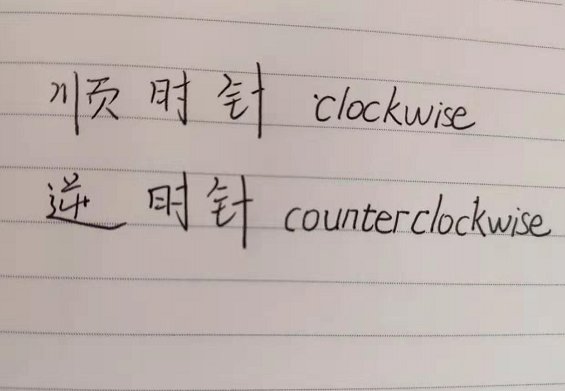 顺时针 clockwise
逆时针 counterclockwise